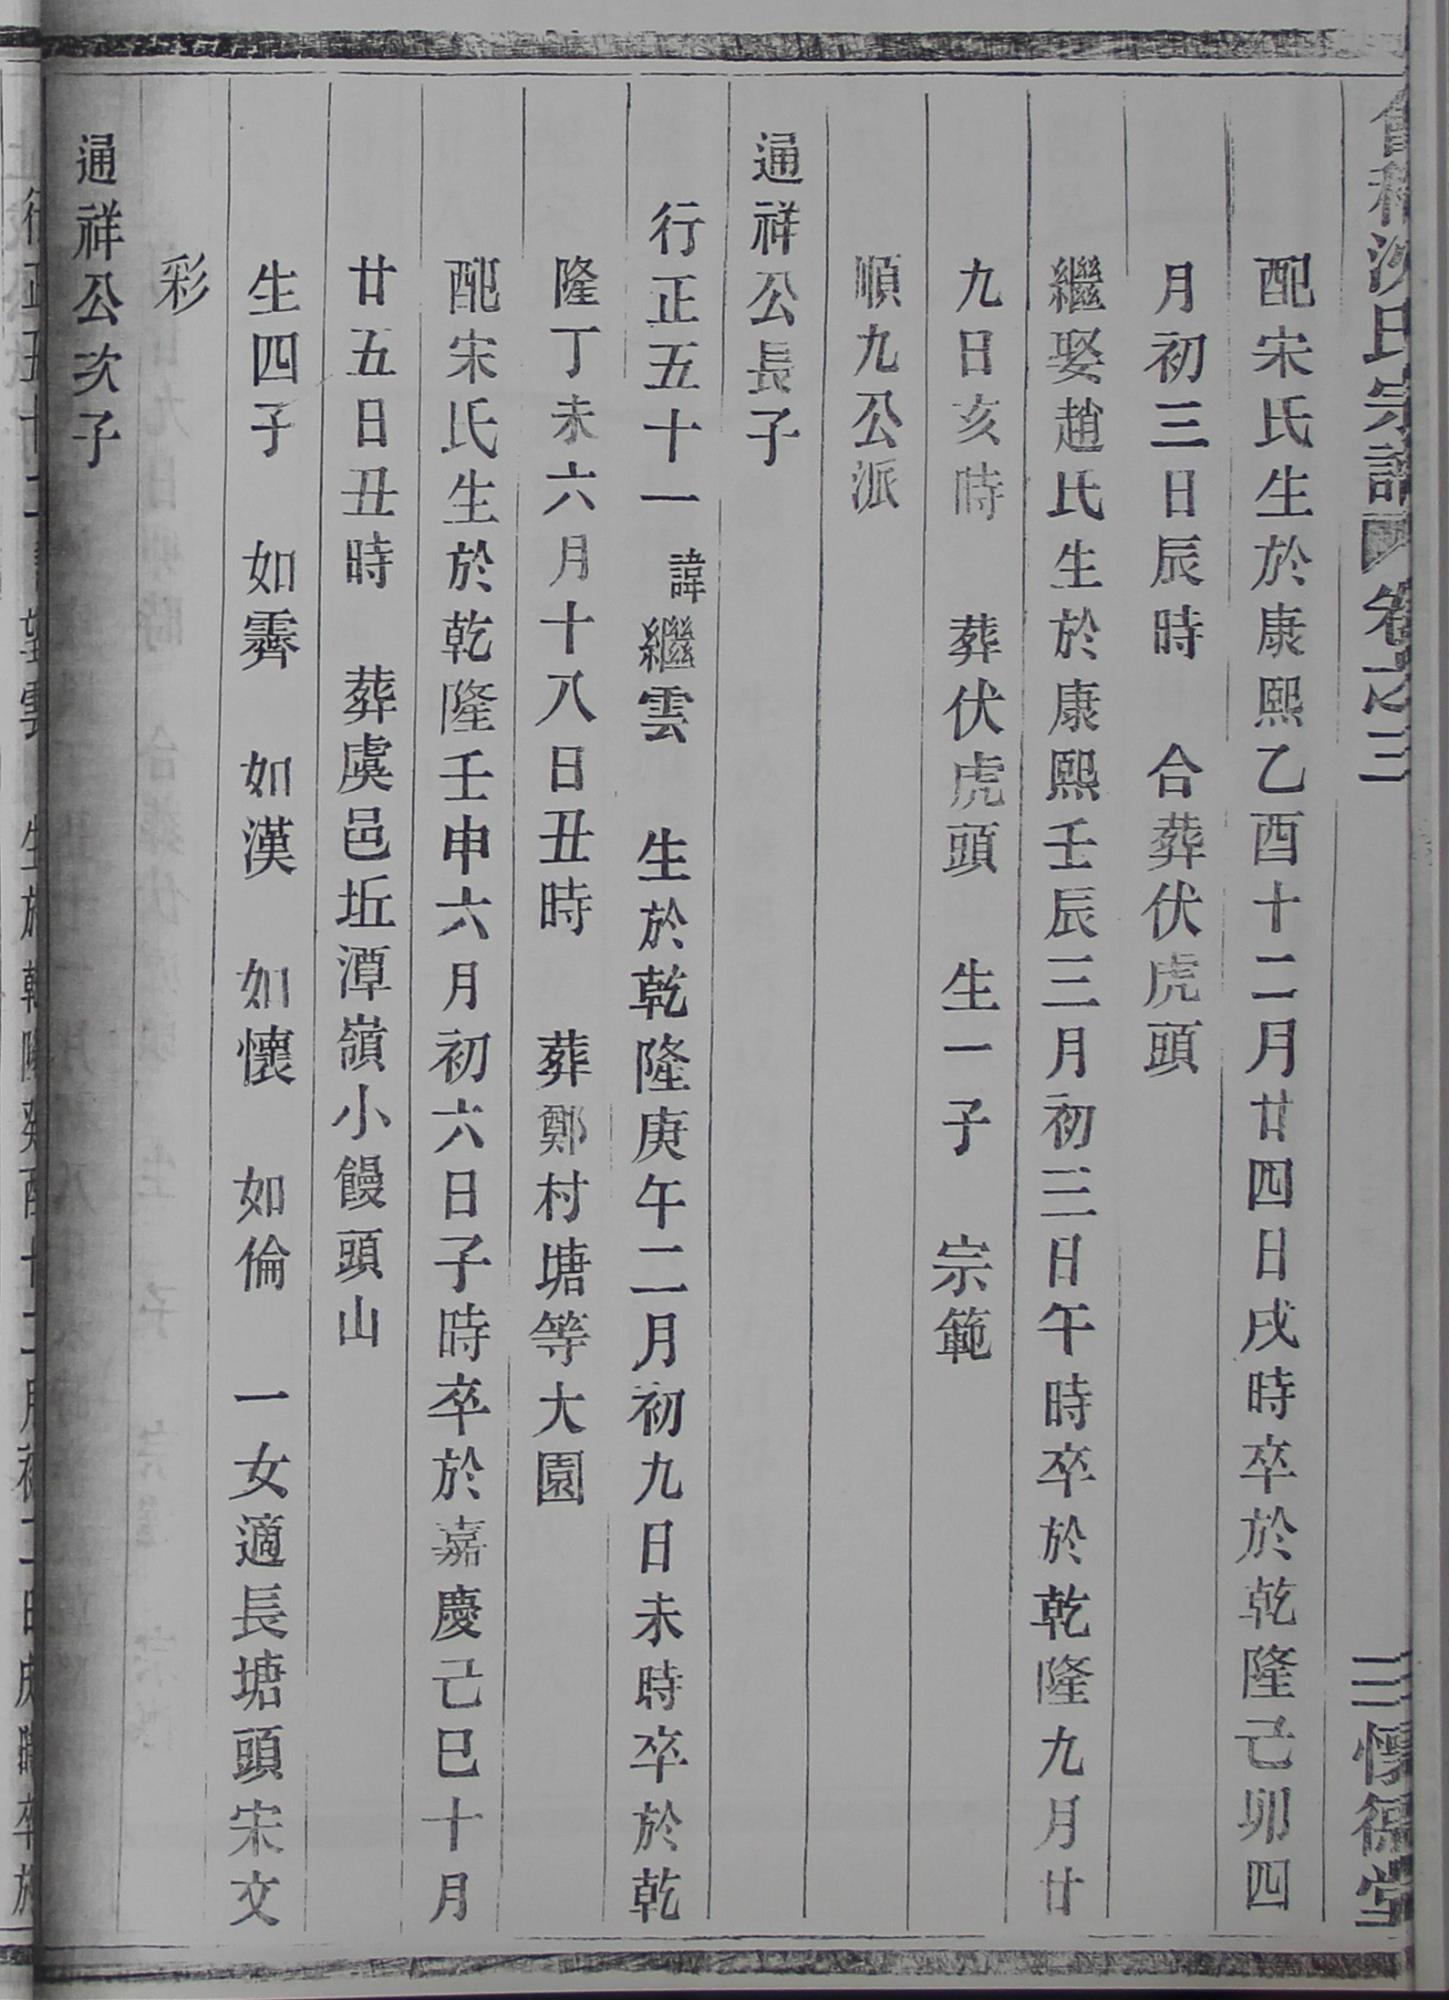 會稽沈氏宗譜 卷之三 三 懷德堂
配宋氏生於康熙乙酉十二月廿四日戌時卒於乾隆己卯四
月初三日辰時 合葬伏虎頭
繼娶趙氏生於康熙壬辰三月初三日午時卒於乾隆九月廿
九日亥時 葬伏虎頭 生一子 宗範
順九公派
通祥公長子
行正五十一 諱繼雲 生於乾隆庚午二月初九日未時卒於乾
隆丁未六月十八日丑時 葬鄭村塘等大園
配宋氏生於乾隆壬申六月初六日子時卒於嘉慶己巳十月
廿五日丑時 葬虞邑坵潭嶺小饅頭山
生四子 如霽 如漢 如懷 如倫 一女適長塘頭宋文
彩
通祥公次子